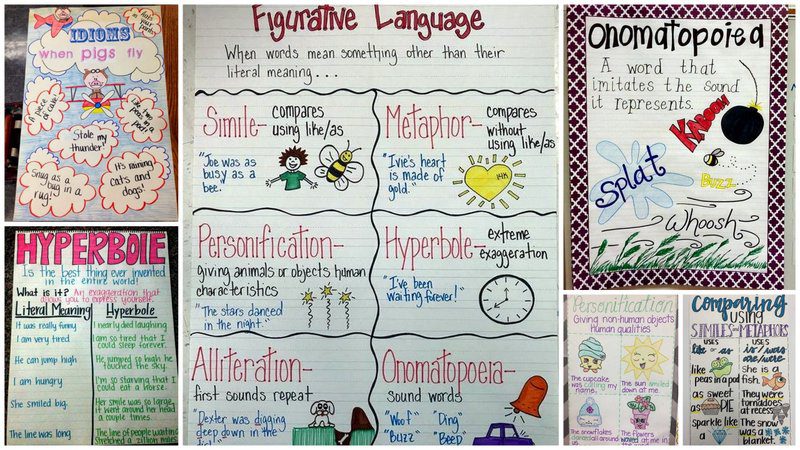 ants in your pants
IDIOMS
when pigs fly
A piece of cake!
Like two peas in a pod!
Stole my thunder!
Snug as a bug in a rug!
It's raining cats and dogs!
HYPERBOLE
Is the best thing ever invented
in the entire world!
What is it? An exaggeration that
allows you to express yourself.
Literal Meaning Hyperbole
It was really funny I nearly died laughing
I am very tired I am so tired that I could sleep forever.
He can jump high He jumped so high he touched the sky.
I am hungry I'm so starving that I could eat a horse.
She smiled big. Her smile was so large, it went around her head a couple times.
The line was long The line of people waiting stretched a zillion miles
Figurative Language
When words mean something other than their
literal meaning...
Simile- compares
using like/as
"Joe was as
busy as a
bee."
Metaphor- compares
without
using like/as
"Ivie's heart
is made of
gold."
14K
Personification-
giving animals or objects human
characteristics
"The stars danced
in the night."
Hyperbole- extreme
exaggeration
"I've been
waiting forever!"
Alliteration-
first sounds repeat
"Dexter was digging
deep down in the
Onomatopoeia-
sound words
"Woof" "Ding"
"Buzz" "Beep"
Onomatopoeia
A word that
imitates the sound
it represents.
KABOOM!
Splat
BUZZ
Whoosh
Personification
Giving non-human objects
Human qualities
The cupcake
was calling my
name.
The sun smiled
down at me.
The snowflakes
danced all around
The flowers
waved at me in
Comparing
using
SIMILES and METAPHORS
USES
like or as
USES
is/was
are/were
like
peas in a pod
She is a
fish.
as sweet
as PIE
They were
tornadoes
at recess.
sparkle like
a
The snow
was a
blanket.